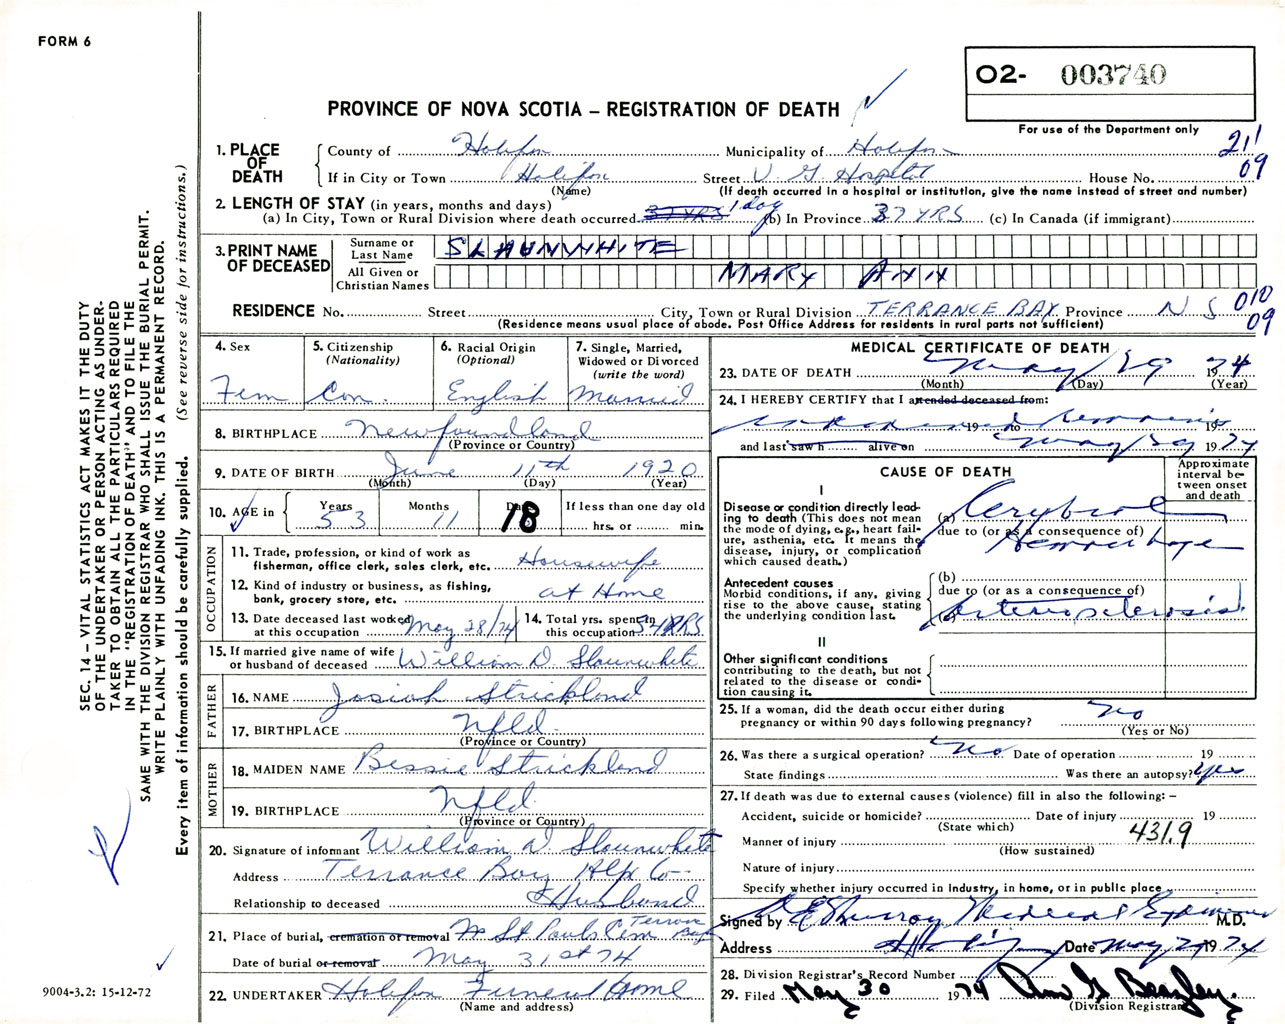 FORM 6
O2- 003740
PROVINCE OF NOVA SCOTIA – REGISTRATION OF DEATH
For use of the Department only
211
09
1. PLACE OF DEATH
County of Halifax Municipality of Halifax
If in City or Town Halifax Street V G Hospital House No.
(Name) (If death occurred in a hospital or institution, give the name instead of street and number)
2. LENGTH OF STAY (in years, months and days)
(a) In City, Town or Rural Division where death occurred 37 YRS 1 day (b) In Province 37 YRS (c) In Canada (if immigrant)
3. PRINT NAME OF DECEASED
Surname or Last Name SLAUNWHITE
All Given or Christian Names MARY ANN
RESIDENCE No. Street City, Town or Rural Division TERRANCE BAY Province N S
(Residence means usual place of abode. Post Office Address for residents in rural parts not sufficient)
010
09
4. Sex Fem
5. Citizenship (Nationality) Can.
6. Racial Origin (Optional) English
7. Single, Married, Widowed or Divorced (write the word) Married
8. BIRTHPLACE Newfoundland
(Province or Country)
9. DATE OF BIRTH June 11th 1920
(Month) (Day) (Year)
10. AGE in Years 53 Months 11 Days 18 If less than one day old hrs. or min.
OCCUPATION
11. Trade, profession, or kind of work as fisherman, office clerk, sales clerk, etc. Housewife
12. Kind of industry or business, as fishing, bank, grocery store, etc. at Home
13. Date deceased last worked at this occupation May 28/74
14. Total yrs. spent in this occupation YRS
15. If married give name of wife or husband of deceased William D. Slaunwhite
FATHER
16. NAME Josiah Strickland
17. BIRTHPLACE Nfld.
(Province or Country)
MOTHER
18. MAIDEN NAME Bessie Strickland
19. BIRTHPLACE Nfld.
(Province or Country)
20. Signature of informant William D. Slaunwhite
Address Terrance Bay Hfx Co
Relationship to deceased Husband
21. Place of burial, cremation or removal St Pauls Cem Terrance Bay
Date of burial or removal May 31st 74
22. UNDERTAKER Halifax Funeral Home
(Name and address)
MEDICAL CERTIFICATE OF DEATH
23. DATE OF DEATH May 29 1974
(Month) (Day) (Year)
24. I HEREBY CERTIFY that I attended deceased from:
19 to 19
and last saw h alive on May 29 1974
CAUSE OF DEATH
Approximate interval between onset and death
I
Disease or condition directly leading to death (This does not mean the mode of dying, e.g., heart failure, asthenia, etc. It means the disease, injury, or complication which caused death.)
(a) Cerybral
due to (or as a consequence of)
Hemorrhage
Antecedent causes
Morbid conditions, if any, giving rise to the above cause, stating the underlying condition last.
(b)
due to (or as a consequence of)
Arteriosclerosis
II
Other significant conditions contributing to the death, but not related to the disease or condition causing it.
25. If a woman, did the death occur either during pregnancy or within 90 days following pregnancy? no
(Yes or No)
26. Was there a surgical operation? no Date of operation 19
State findings Was there an autopsy? yes
27. If death was due to external causes (violence) fill in also the following: –
Accident, suicide or homicide? Date of injury 19
(State which)
Manner of injury 431.9
(How sustained)
Nature of injury
Specify whether injury occurred in Industry, in home, or in public place
Signed by Murray Medical Examiner M.D.
Address Date May 29 1974
28. Division Registrar's Record Number
29. Filed May 30 1974
(Division Registrar)
SEC. 14 – VITAL STATISTICS ACT MAKES IT THE DUTY
OF THE UNDERTAKER OR PERSON ACTING AS UNDER-
TAKER TO OBTAIN ALL THE PARTICULARS REQUIRED
IN THE "REGISTRATION OF DEATH" AND TO FILE THE
SAME WITH THE DIVISION REGISTRAR WHO SHALL ISSUE THE BURIAL PERMIT.
WRITE PLAINLY WITH UNFADING INK. THIS IS A PERMANENT RECORD.
Every item of information should be carefully supplied. (See reverse side for instructions.)
9004-3.2: 15-12-72